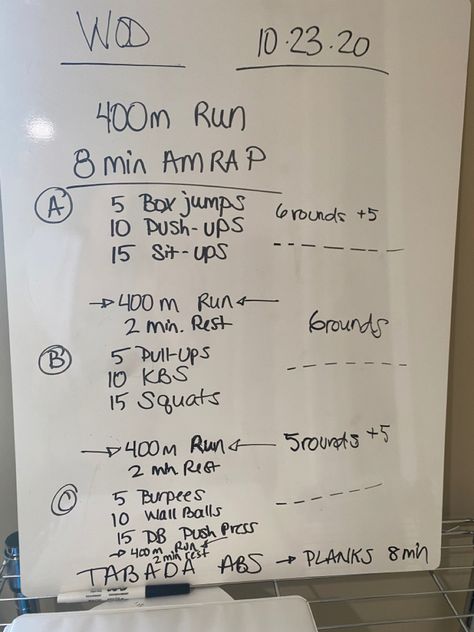 WOD 10.23.20
400m Run
8 min AMRAP
A 5 Box jumps 6rounds +5
10 Push-ups
15 Sit-ups
400m Run
2 min. Rest 6rounds
B 5 Pull-ups
10 KBS
15 Squats
400m Run 5rounds +5
2 min Rest
C 5 Burpees
10 Wall Balls
15 DB Push Press
→ 400m Run &
2 min rest
TABADA ABS → PLANKS 8min